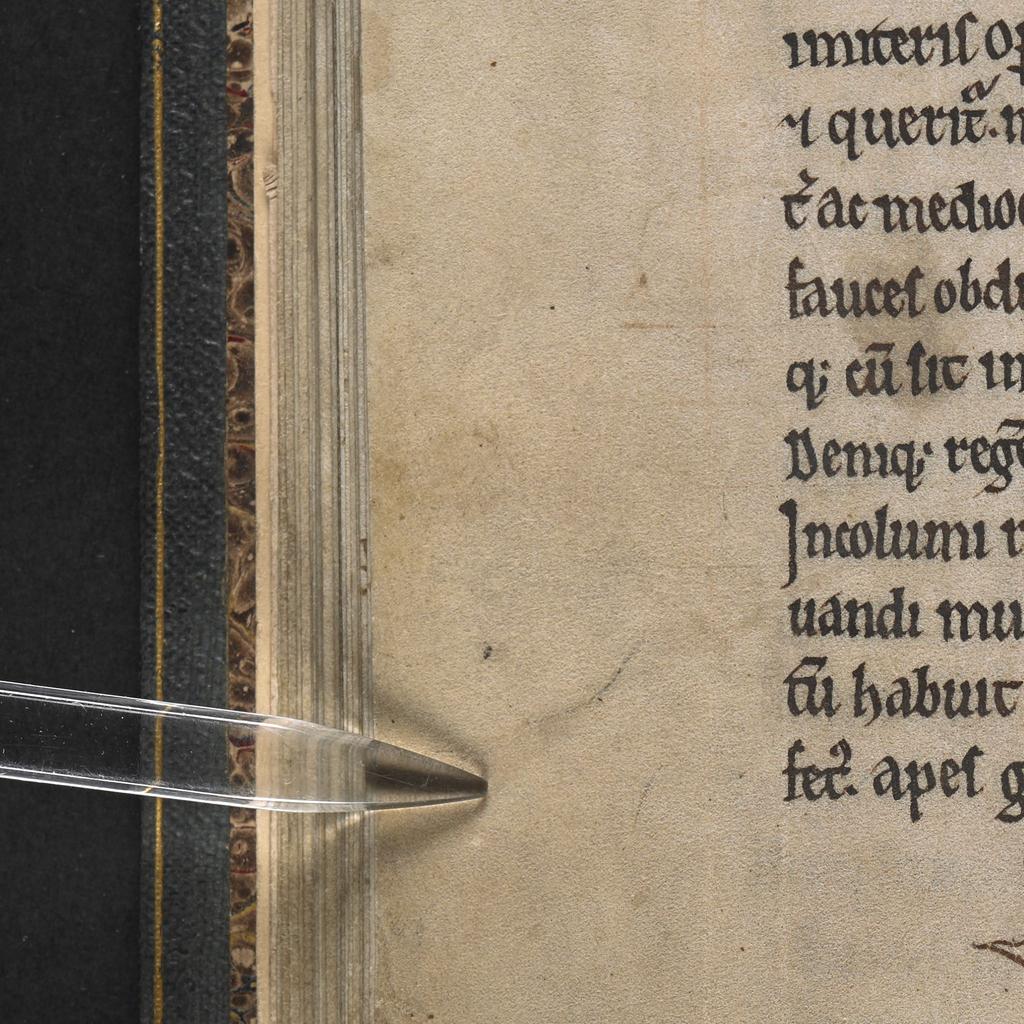 imiteris op
⁊ querit᷑. m
t᷑ ac medio
fauces obdu
q; cū sit in
Deniq; reg
Incolumi r
uandi mu
tū habuit
fec᷑. apes g